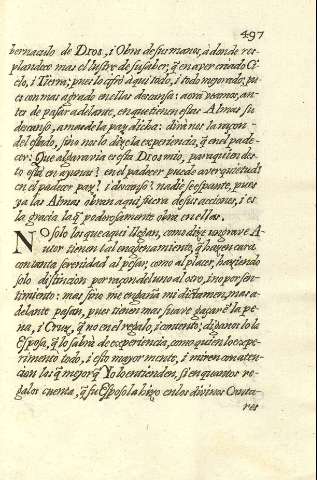 497
vernaculo de DIOS, i Obra de sus manos, a donde res-
plandece mas el lustre de su saber, q̃ en aver criado Ci-
elo, i Tierra; pues lo cifrò aqui todo, i todo mejorado, pu-
es con mas agrado en ellas descansa: aora veamos, an-
tes de pasar adelante, en que tienen estas Almas su
descanso, a mas de la paz dicha: dirà nos la raçon
del estado, sino nos lo dize la experiencia, q̃ en el pade-
cer: Que algaravia es esta DIOS mio, para quien des-
to està en ayunas? en el padecer puede aver quietud?
en el padecer paz? i descanso? nadie se espante, pues
ya las Almas obran aqui, fuera de sus acciones, i es
la gracia la q̃ poderosamente obra en ellas.
NO solo los que aqui llegan, como dize un grave A-
utor tienen tal enagenamiento, q̃ hazen cara
con tanta serenidad al pesar, como al placer, haziendo
solo distincion por raçon del uno al otro, i no por sen-
timiento: mas, sino me engaña mi dictamen, mas a-
delante pasan, pues tienen mas suave gaxe ẽ la pe-
na, i Cruz, q̃ no en el regalo, i contento; diganos lo la
Esposa, q̃ lo sabrà de experiencia, como quien lo expe-
rimentò todo, i esto mayor mente, i miren con aten-
cion las q̃ mejor q̃ Yo lo entienden, si en quantos re-
galos cuenta, q̃ su Esposo la hizo en los divinos Canta-
res